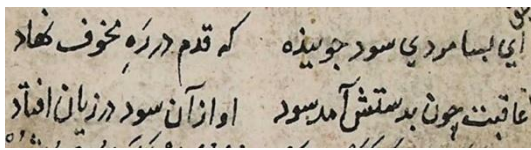 ای بسا مردی سود جوینده که قدم در ره مخوف نهاد
عاقبت چون بدستش آمد سود او از آن سود در زیان افتاد